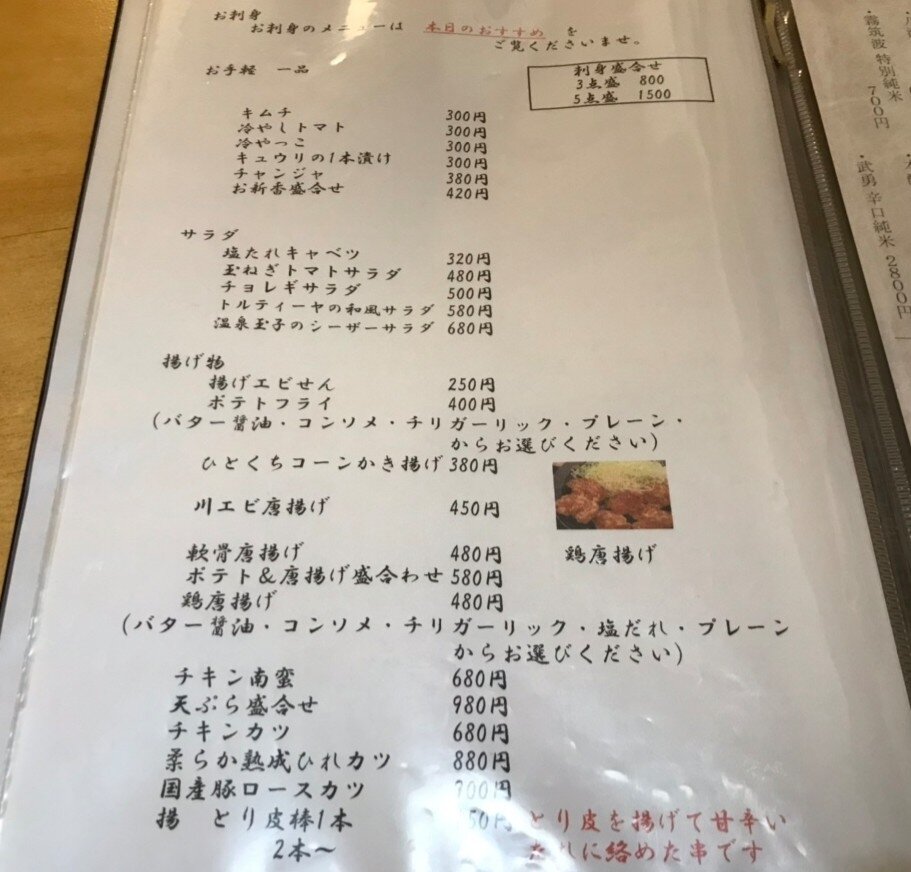 お刺身
お刺身のメニューは 本日のおすすめ を
ご覧くださいませ。
刺身盛合せ
3点盛 800
5点盛 1500
お手軽 一品
キムチ 300円
冷やしトマト 300円
冷やっこ 300円
キュウリの1本漬け 300円
チャンジャ 380円
お新香盛合せ 420円
サラダ
塩たれキャベツ 320円
玉ねぎトマトサラダ 480円
チョレギサラダ 500円
トルティーヤの和風サラダ 580円
温泉玉子のシーザーサラダ 680円
揚げ物
揚げエビせん 250円
ポテトフライ 400円
(バター醤油・コンソメ・チリガーリック・プレーン・
からお選びください)
ひとくちコーンかき揚げ 380円
川エビ唐揚げ 450円
軟骨唐揚げ 480円
ポテト&唐揚げ盛合わせ 580円
鶏唐揚げ 480円
鶏唐揚げ
(バター醤油・コンソメ・チリガーリック・塩だれ・プレーン
からお選びください)
チキン南蛮 680円
天ぷら盛合せ 980円
チキンカツ 680円
柔らか熟成ひれカツ 880円
国産豚ロースカツ 700円
揚 とり皮棒1本
2本～
とり皮を揚げて甘辛い
たれに絡めた串です
霧筑波 特別純米 700円
武勇 辛口純米 2800円